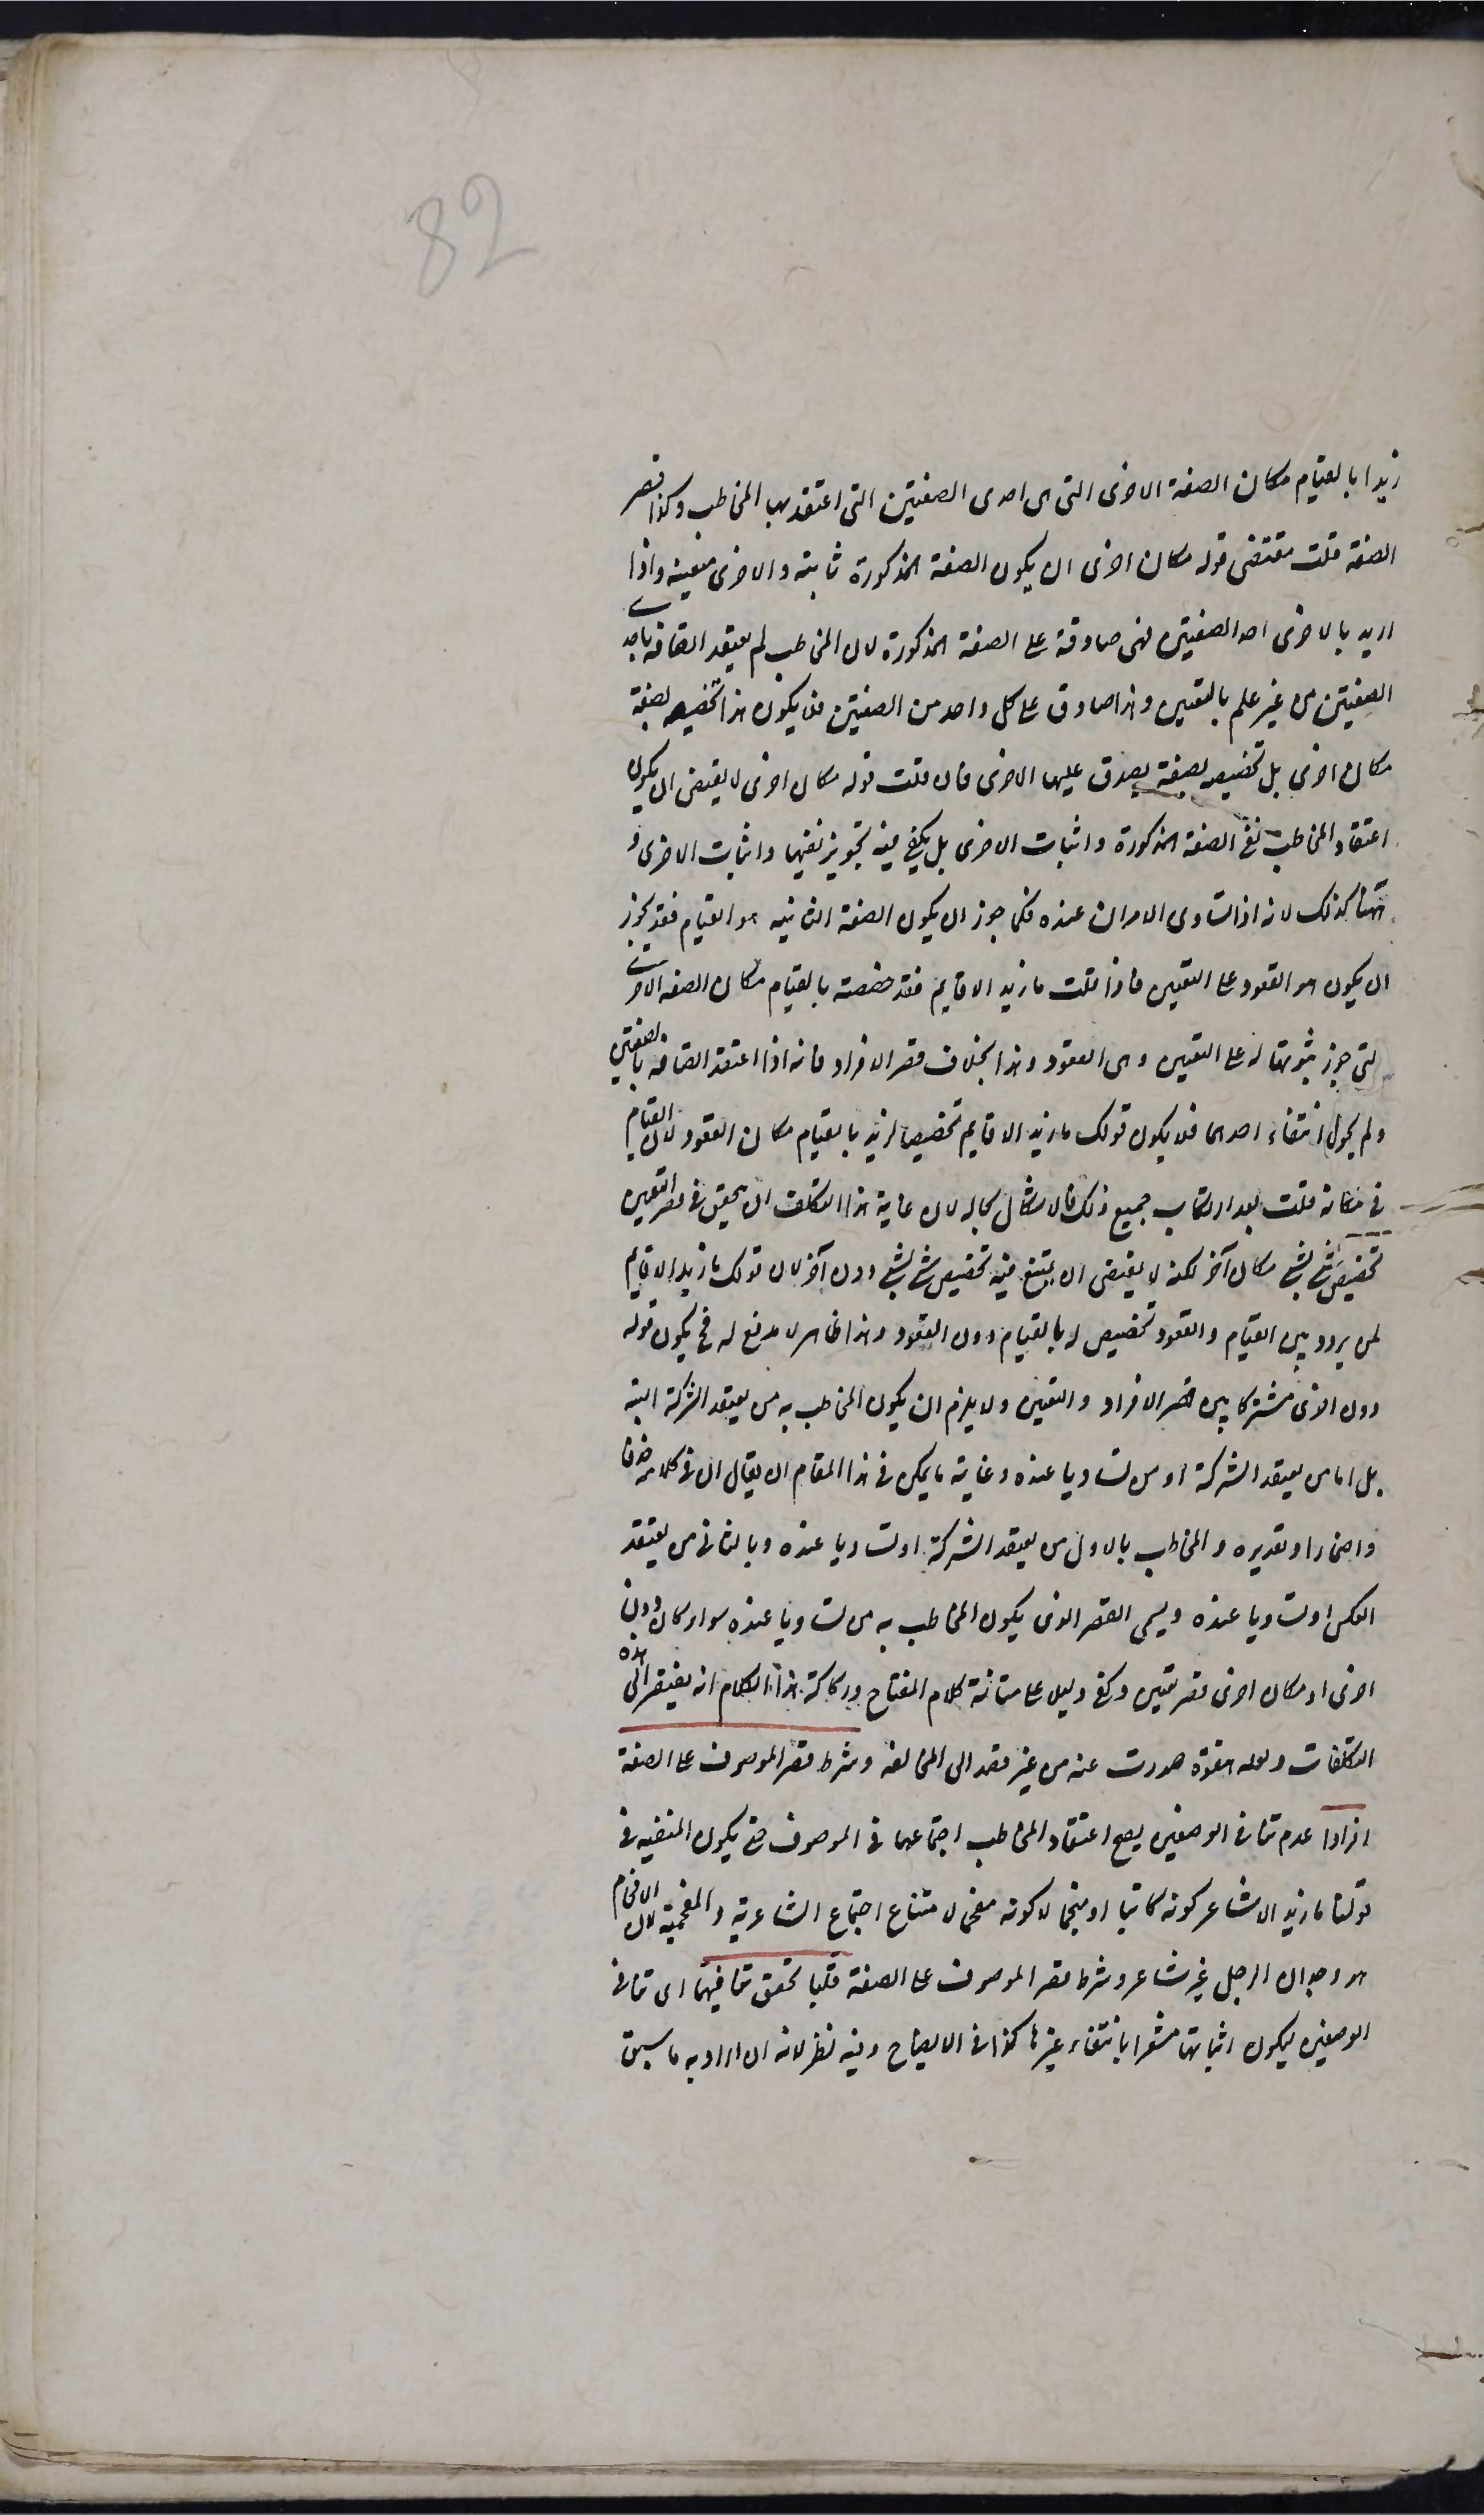 82
زيدا بالقيام مكان الصفة الاخرى التى هى احدى الصفتين التى اعتقد بها المخاطب وكذا قصر
الصفة قلت مقتضى قوله مكان اخرى ان يكون الصفة المذكورة ثابتة والاخرى منفية واذا
اريد بالاخرى احد الصفتين فهى صادقة على الصفة المذكورة لان المخاطب لم يعتقد اتصافه باحدى
الصفتين من غير علم بالتعيين وهذا صادق على كل واحد من الصفتين فلا يكون هذا تخصيصه بصفة
مكان اخرى بل تخصيصه بصفة يصدق عليها الاخرى فان قلت قوله مكان اخرى لا يقتضى ان يكون
اعتقاد المخاطب نفى الصفة المذكورة واثبات الاخرى بل يكفى فيه تجويز نفيها واثبات الاخرى و
ههنا كذلك لانه اذا تساوى الامران عنده فكما جوز ان يكون الصفة الثانية هو القيام فقد يجوز
ان يكون هو القعود على التعيين فاذا قلت ما زيد الا قايم فقد خصصته بالقيام مكان الصفة الاخرى
التى جوز ثبوتها له على التعيين وهى القعود وهذا بخلاف قصر الافراد فانه اذا اعتقد اتصافه بالصفتين
ولم يجوز انتفاء احدهما فلا يكون قولك ما زيد الا قايم تخصيصا لزيد بالقيام مكان القعود لان القيام
فى مكانه قلت بعد ارتكاب جميع ذلك فالاشكال بحاله لان غاية هذا التكلف ان يحقق فى قصر التعيين
تخصيص شئ بشئ مكان آخر لكنه لا يقتضى ان يمتنع فيه تخصيص شئ بشئ دون آخر لان قولك ما زيد الا قايم
لمن يردد بين القيام والقعود تخصيص له بالقيام دون القعود وهذا ظاهر لا مدفع له فح يكون قوله
دون اخرى مشتركا بين قصر الافراد والتعيين ولا يلزم ان يكون المخاطب به من يعتقد الشركة البتة
بل اما من يعتقد الشركة او من تساويا عنده وغاية ما يمكن فى هذا المقام ان يقال ان فى كلامه حذفا
واضمارا وتقديره والمخاطب بالاول من يعتقد الشركة او تساويا عنده وبالثانى من يعتقد
العكس او تساويا عنده ويسمى القصر الذى يكون المخاطب به من تساويا عنده سواء كان دون
اخرى او مكان اخرى قصر تعيين وكفى دليلا على متانة كلام المفتاح وركاكة هذا الكلام انه يفتقر الى هذه
التكلفات ولعله هفوة صدرت عنه من غير قصد الى المخالفة وشرط قصر الموصوف على الصفة
افرادا عدم تنافى الوصفين ليصح اعتقاد المخاطب اجتماعهما فى الموصوف حتى يكون المنفية فى
قولنا ما زيد الا شاعر كونه كاتبا او منجما لا كونه مفحما لامتناع اجتماع الشاعرية والمفحمية لان الافحام
هو وجدان الرجل غير شاعر وشرط قصر الموصوف على الصفة قلبا تحقق تنافيهما اى تنافى
الوصفين ليكون اثباتها مشعرا بانتفاء غيرها كذا فى الايضاح وفيه نظر لانه ان اراد به ما سبق